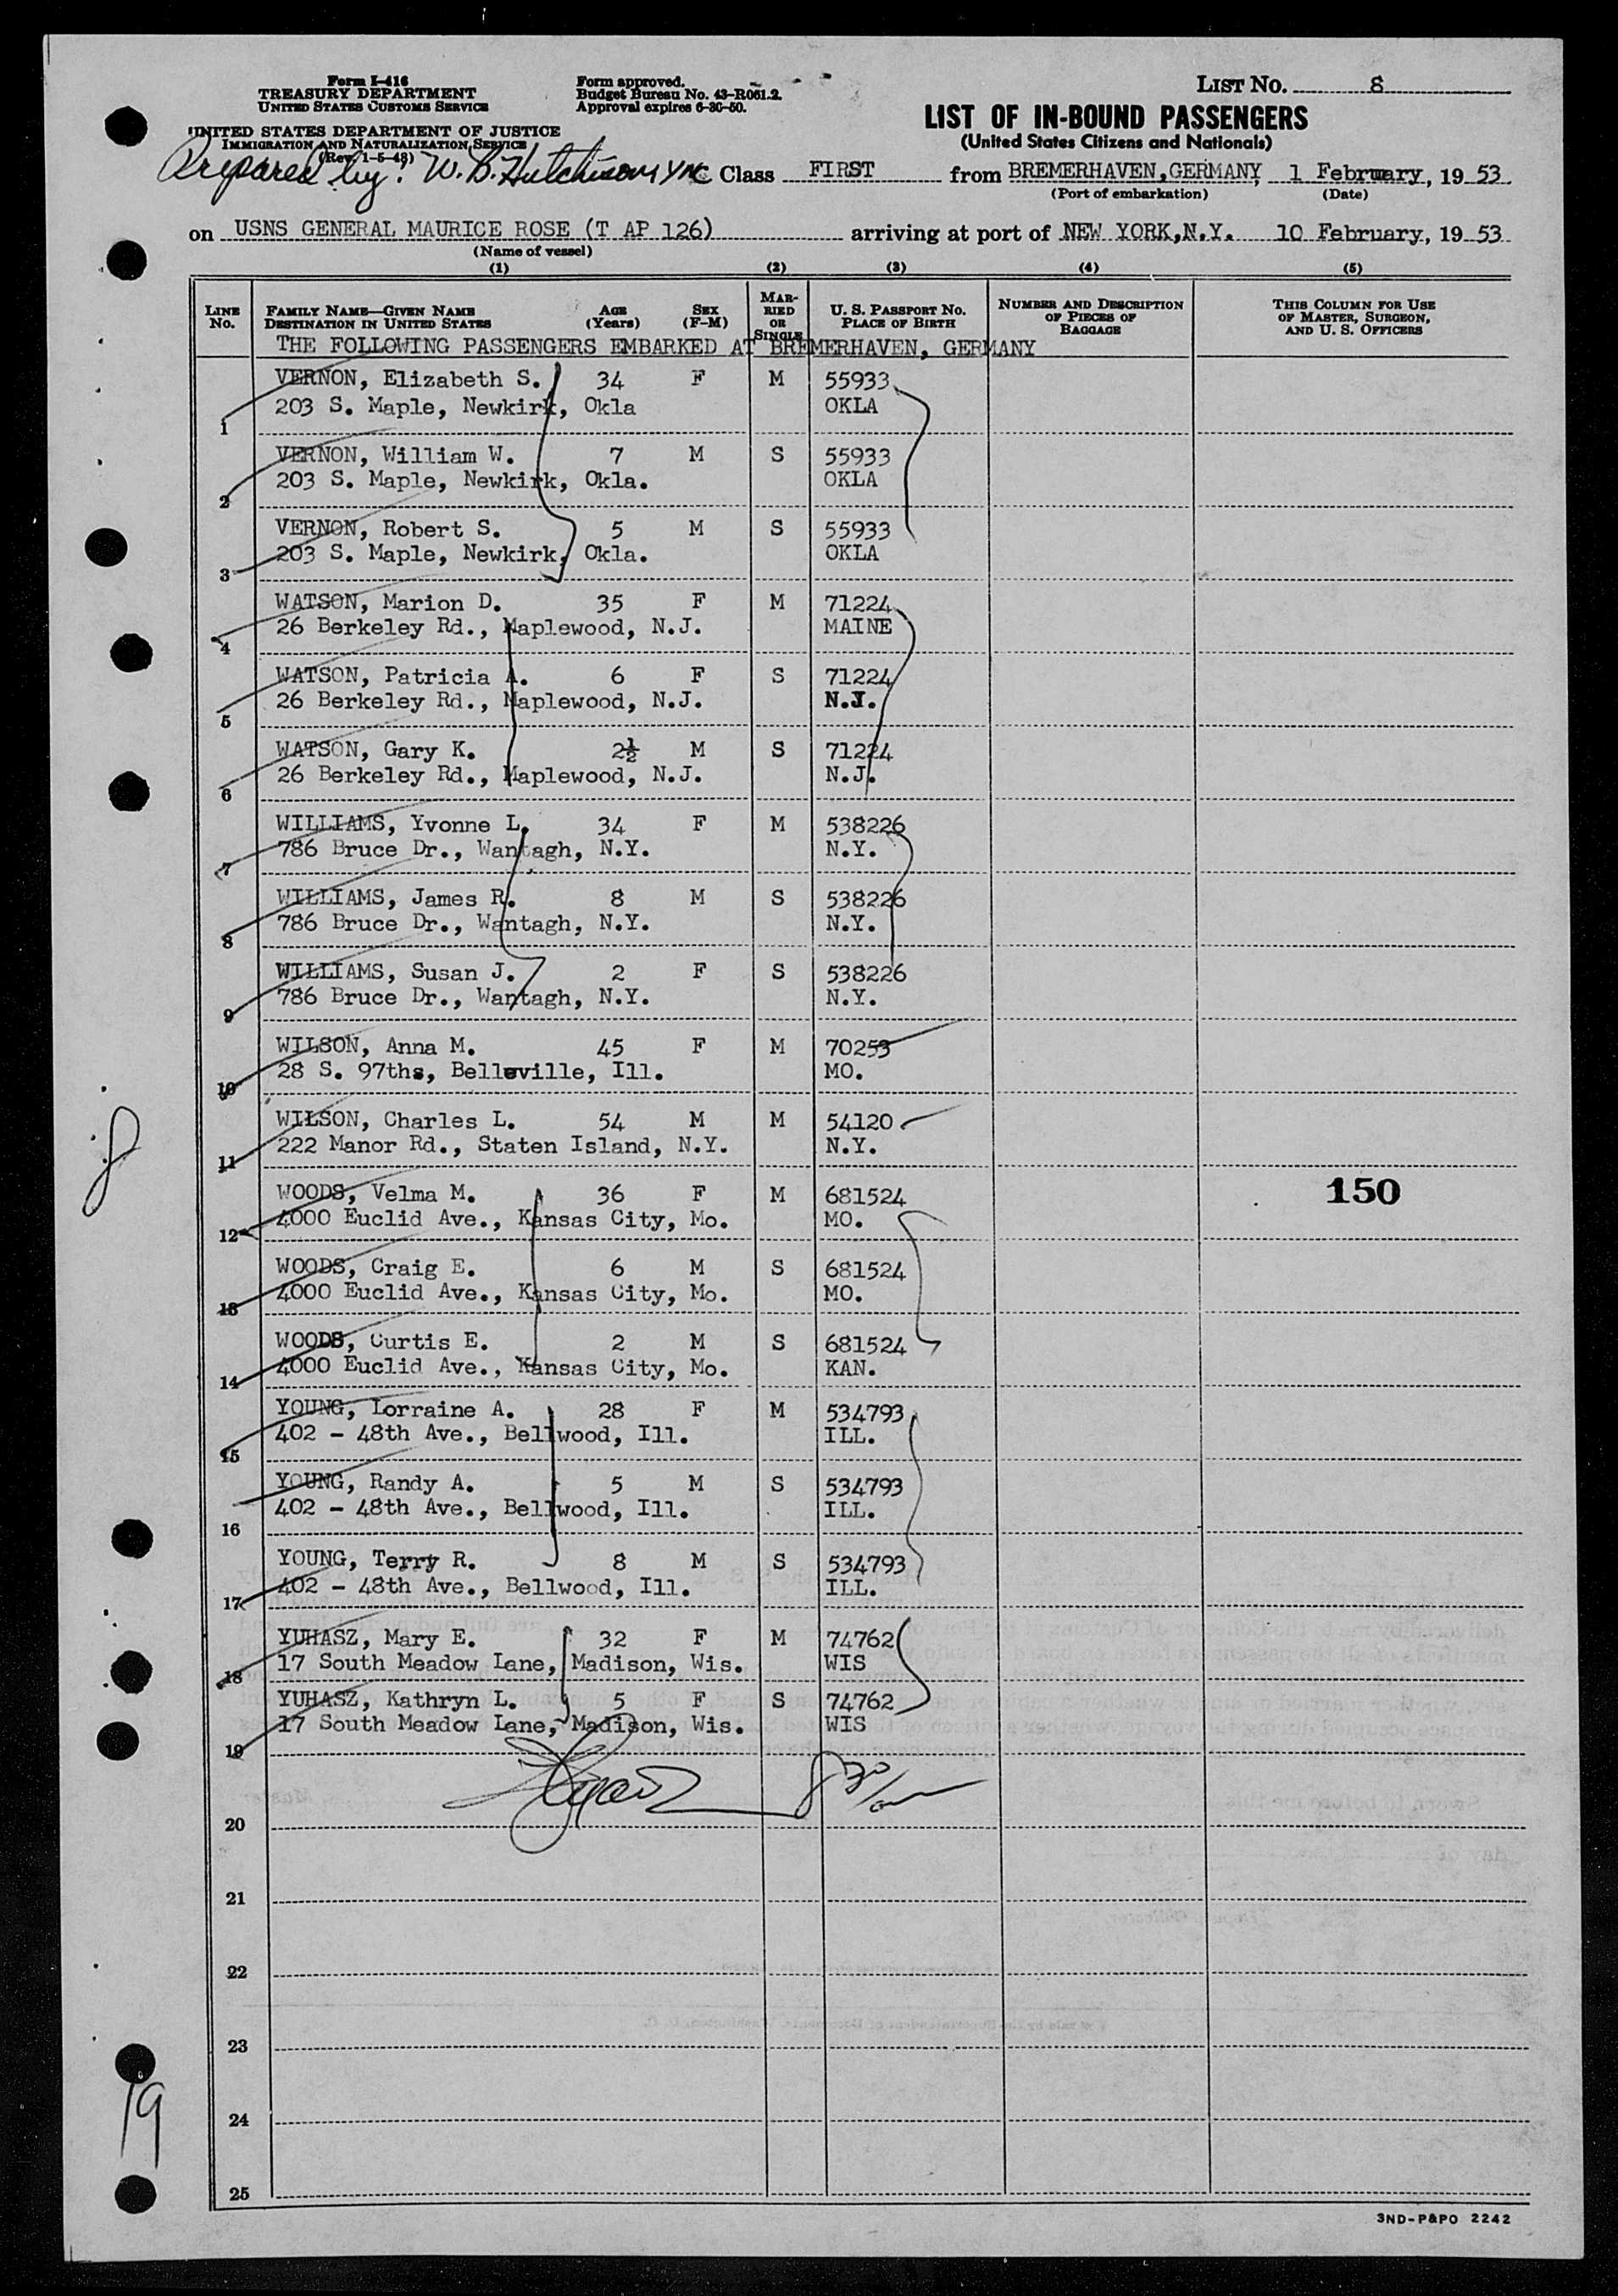 Form I-416
TREASURY DEPARTMENT
UNITED STATES CUSTOMS SERVICE
UNITED STATES DEPARTMENT OF JUSTICE
IMMIGRATION AND NATURALIZATION SERVICE
(Rev. 1-5-48)
Form approved.
Budget Bureau No. 43-R061.2.
Approval expires 6-30-50.
LIST NO. 8
LIST OF IN-BOUND PASSENGERS
(United States Citizens and Nationals)
Prepared by: W. B. Hutchison, YNC Class FIRST from BREMERHAVEN, GERMANY, 1 February, 19 53
(Port of embarkation) (Date)
on USNS GENERAL MAURICE ROSE (T AP 126) arriving at port of NEW YORK, N.Y. 10 February, 19 53
(Name of vessel)
(1) (2) (3) (4) (5)
LINE NO. FAMILY NAME—GIVEN NAME DESTINATION IN UNITED STATES AGE (Years) SEX (F-M) MARRIED OR SINGLE U. S. PASSPORT NO. PLACE OF BIRTH NUMBER AND DESCRIPTION OF PIECES OF BAGGAGE THIS COLUMN FOR USE OF MASTER, SURGEON, AND U. S. OFFICERS
THE FOLLOWING PASSENGERS EMBARKED AT BREMERHAVEN, GERMANY
VERNON, Elizabeth S. 34 F M 55933
1 203 S. Maple, Newkirk, Okla OKLA
VERNON, William W. 7 M S 55933
2 203 S. Maple, Newkirk, Okla. OKLA
VERNON, Robert S. 5 M S 55933
3 203 S. Maple, Newkirk, Okla. OKLA
WATSON, Marion D. 35 F M 71224
4 26 Berkeley Rd., Maplewood, N.J. MAINE
WATSON, Patricia A. 6 F S 71224
5 26 Berkeley Rd., Maplewood, N.J. N.J.
WATSON, Gary K. 2½ M S 71224
6 26 Berkeley Rd., Maplewood, N.J. N.J.
WILLIAMS, Yvonne L. 34 F M 538226
7 786 Bruce Dr., Wantagh, N.Y. N.Y.
WILLIAMS, James R. 8 M S 538226
8 786 Bruce Dr., Wantagh, N.Y. N.Y.
WILLIAMS, Susan J. 2 F S 538226
9 786 Bruce Dr., Wantagh, N.Y. N.Y.
WILSON, Anna M. 45 F M 70253
10 28 S. 97ths, Belleville, Ill. MO.
WILSON, Charles L. 54 M M 54120
11 222 Manor Rd., Staten Island, N.Y. N.Y.
WOODS, Velma M. 36 F M 681524 150
12 4000 Euclid Ave., Kansas City, Mo. MO.
WOODS, Craig E. 6 M S 681524
13 4000 Euclid Ave., Kansas City, Mo. MO.
WOODS, Curtis E. 2 M S 681524
14 4000 Euclid Ave., Kansas City, Mo. KAN.
YOUNG, Lorraine A. 28 F M 534793
15 402 - 48th Ave., Bellwood, Ill. ILL.
YOUNG, Randy A. 5 M S 534793
16 402 - 48th Ave., Bellwood, Ill. ILL.
YOUNG, Terry R. 8 M S 534793
17 402 - 48th Ave., Bellwood, Ill. ILL.
YUHASZ, Mary E. 32 F M 74762
18 17 South Meadow Lane, Madison, Wis. WIS
YUHASZ, Kathryn L. 5 F S 74762
19 17 South Meadow Lane, Madison, Wis. WIS
20
21
22
23
24
25
8
19
3ND-P&PO 2242